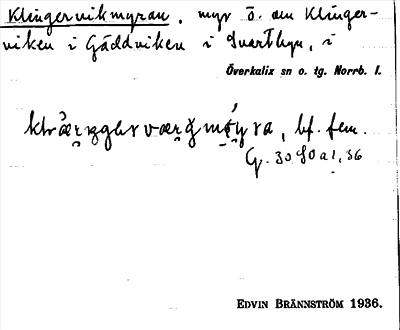 Klingervikmyran, myr ö. om Klinger-
viken i Gäddviken i Svartbyn, i
Överkalix sn o. tg. Norrb. l.
bf. fem.
EDVIN BRÄNNSTRÖM 1936.